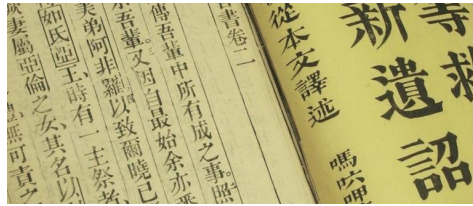 救
新遺詔
從本文譯述
嗎
書卷二
傳吾輩中所有成之事。照
吾輩。又因自最始余亦悉
弟阿非羅以致爾曉已
如氏亞王時有一主祭者
妻屬亞倫之女其名以
無可責之